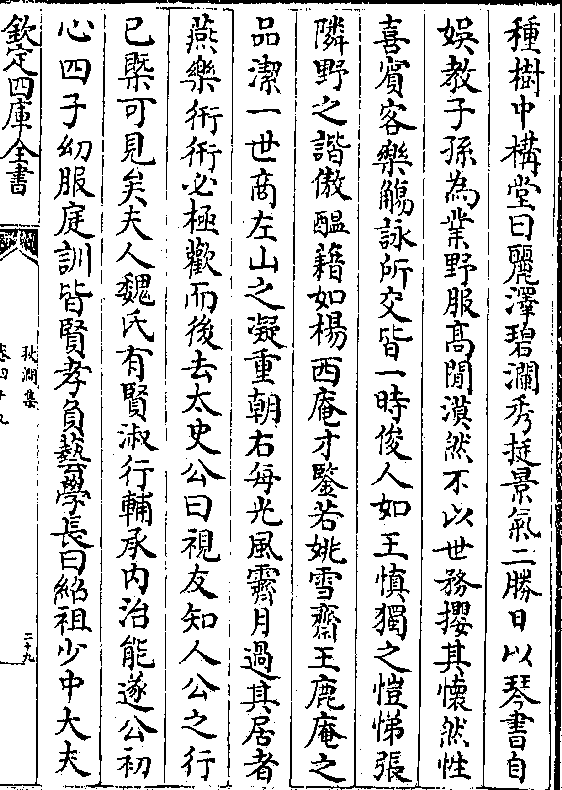 種樹中構堂曰麗澤碧瀾秀挺景氣二勝日以琴書自
娛教子孫為業野服髙閒漠然不以世務攖其懷然性
喜賓客樂觴詠所交皆一時俊人如王慎獨之愷悌張
隣野之諧傲醖藉如楊西庵才鑒若姚雪齋王鹿庵之
品潔一世商左山之凝重朝右每光風霽月過其居者
燕樂衎衎必極歡而後去太史公曰視友知人公之行
已槩可見矣夫人魏氏有賢淑行輔承内治能遂公初
心四子幼服庭訓皆賢孝負藝學長曰紹祖少中大夫
欽定四庫全書
秋澗集
卷四十九
二十九